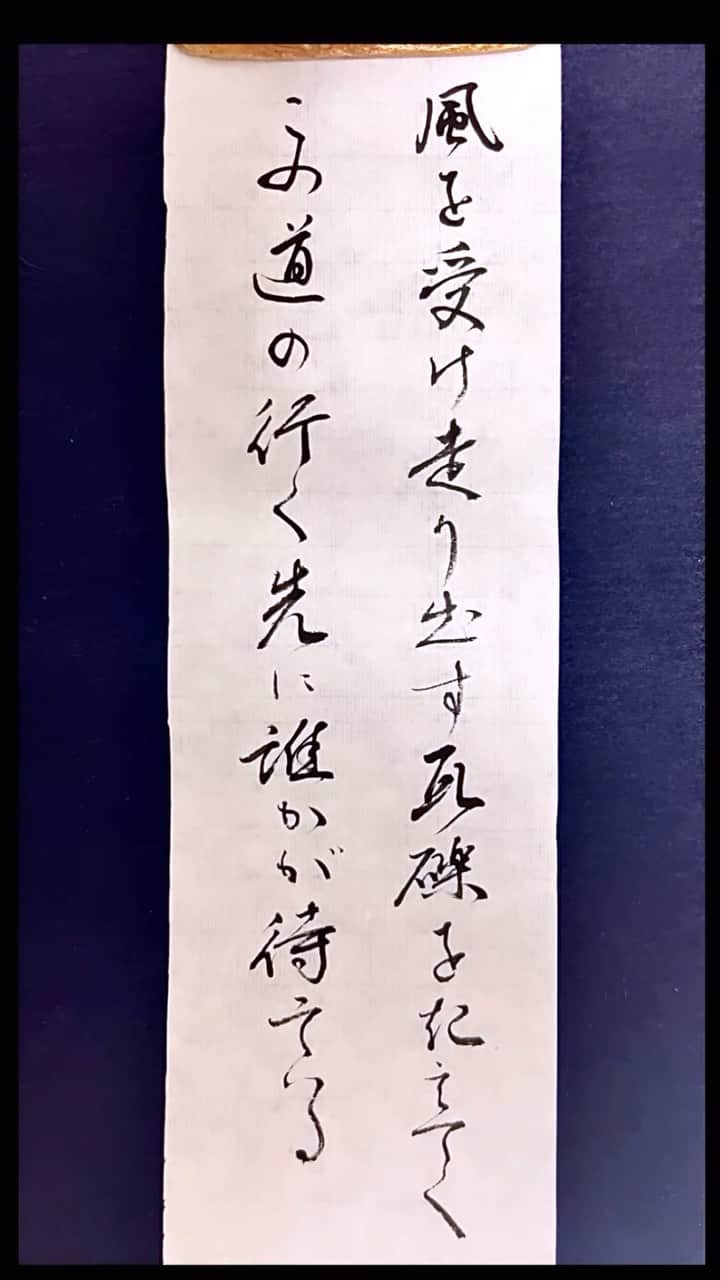 風を受け走り出す瓦礫を越えていく
この道の行く先に誰かが待っている